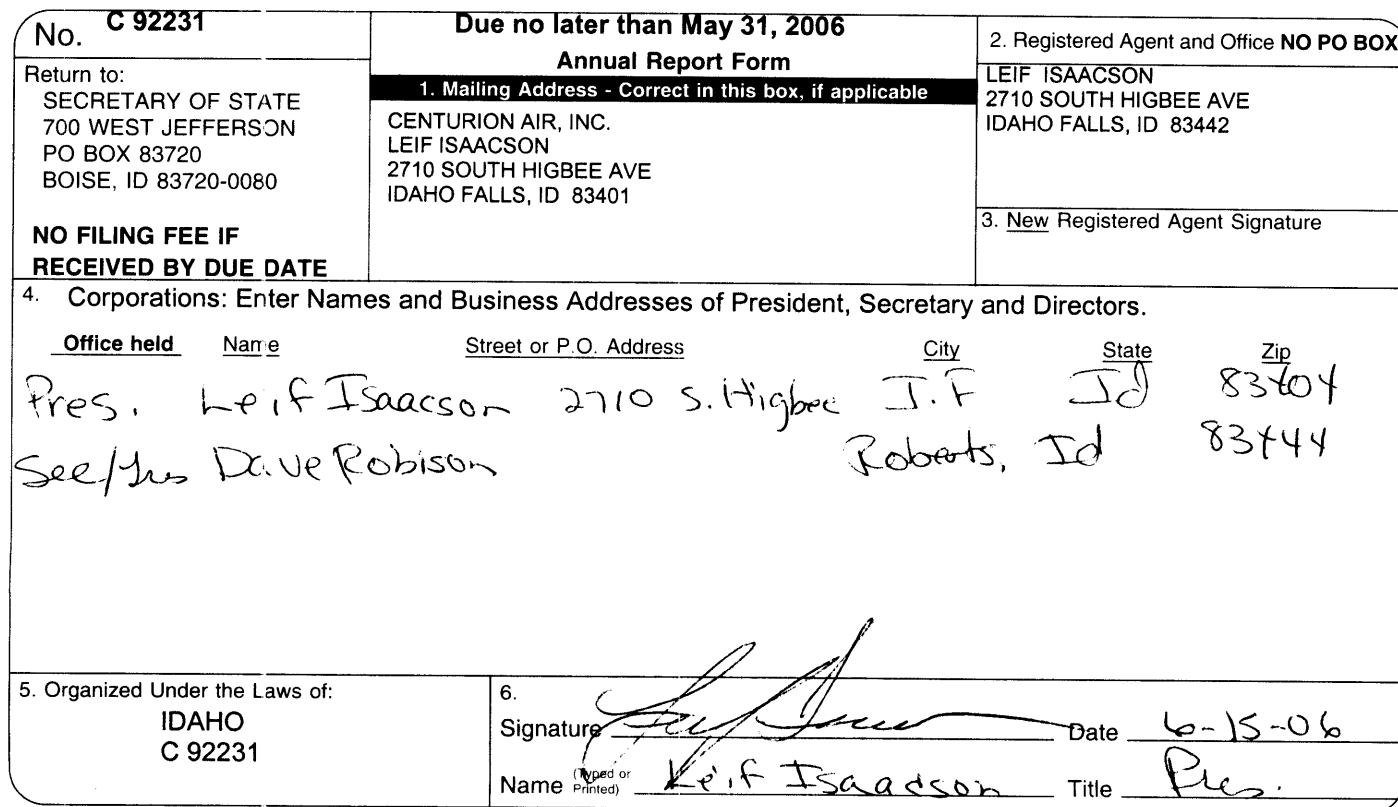 No. C 92231
Return to:
SECRETARY OF STATE
700 WEST JEFFERSON
PO BOX 83720
BOISE, ID 83720-0080
NO FILING FEE IF
RECEIVED BY DUE DATE
Due no later than May 31, 2006
Annual Report Form
1. Mailing Address - Correct in this box, if applicable
CENTURION AIR, INC.
LEIF ISAACSON
2710 SOUTH HIGBEE AVE
IDAHO FALLS, ID 83401
2. Registered Agent and Office NO PO BOX
LEIF ISAACSON
2710 SOUTH HIGBEE AVE
IDAHO FALLS, ID 83442
3. New Registered Agent Signature
4. Corporations: Enter Names and Business Addresses of President, Secretary and Directors.
Office held Name Street or P.O. Address City State Zip
Pres. Leif Isaacson 2710 S. Higbee I.F Id 83404
Sec/trs Dave Robison Roberts, Id 83444
5. Organized Under the Laws of:
IDAHO
C 92231
6.
Signature Date 6-15-06
Name (Typed or Printed) Leif Isaacson Title Pres.